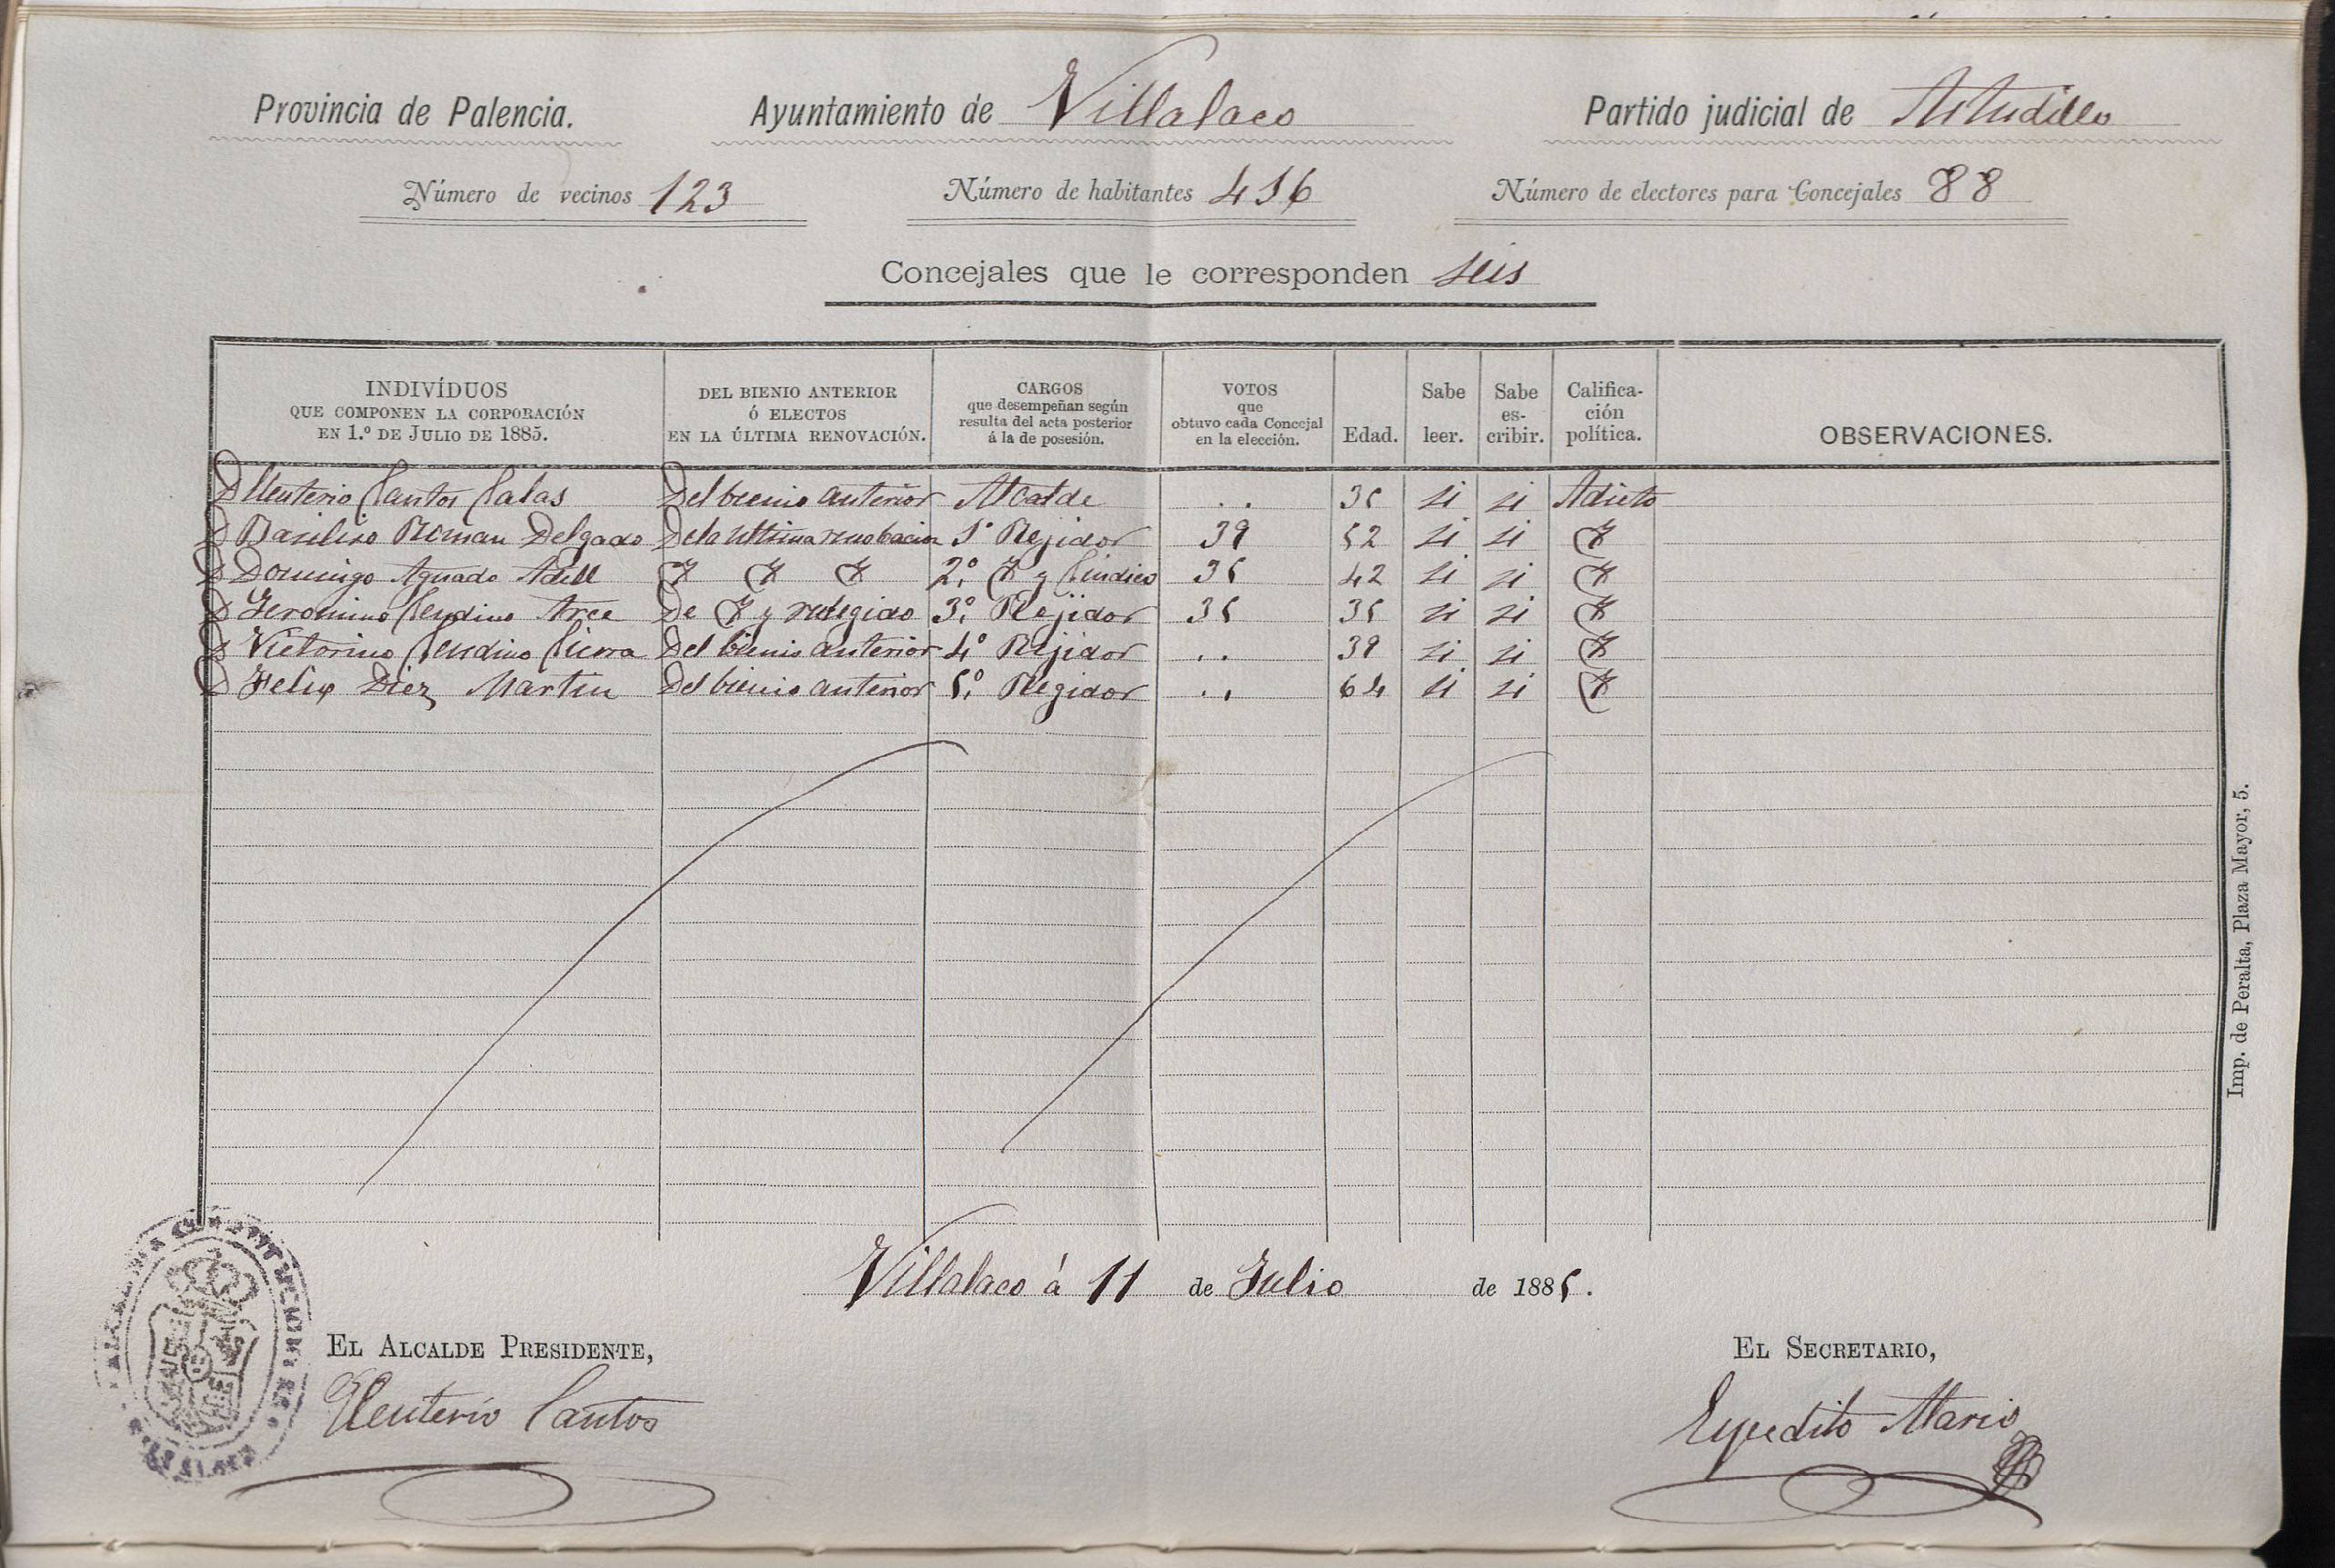 Provincia de Palencia. Ayuntamiento de Villalaco Partido judicial de Astudillo
Número de vecinos 123 Número de habitantes 416 Número de electores para Concejales 88
Concejales que le corresponden seis
INDIVÍDUOS QUE COMPONEN LA CORPORACIÓN EN 1.º DE JULIO DE 1885. DEL BIENIO ANTERIOR Ó ELECTOS EN LA ÚLTIMA RENOVACIÓN. CARGOS que desempeñan según resulta del acta posterior á la de posesión. VOTOS que obtuvo cada Concejal en la elección. Edad. Sabe leer. Sabe escribir. Calificación política. OBSERVACIONES.
D Eleuterio Santos Salas Del bienio anterior Alcalde .. 35 si si Adicto
D Basiliso Roman Delgado De la ultima renobacion 1º Rejidor 39 52 si si
D Domingo Aguado Adell 2.º y Sindico 35 42 si si
D Jeronimo Sendino Arce De y relegido 3.º Rejidor 35 35 si si
D Victorino Sendino Sierra Del bienio anterior 4º Rejidor .. 39 si si
D Felix Diez Martin Del bienio anterior 5.º Regidor .. 64 si si
Villalaco á 11 de Julio de 1885.
EL ALCALDE PRESIDENTE, EL SECRETARIO,
Eleuterio Santos Expedito Mario
Imp. de Peralta, Plaza Mayor, 5.